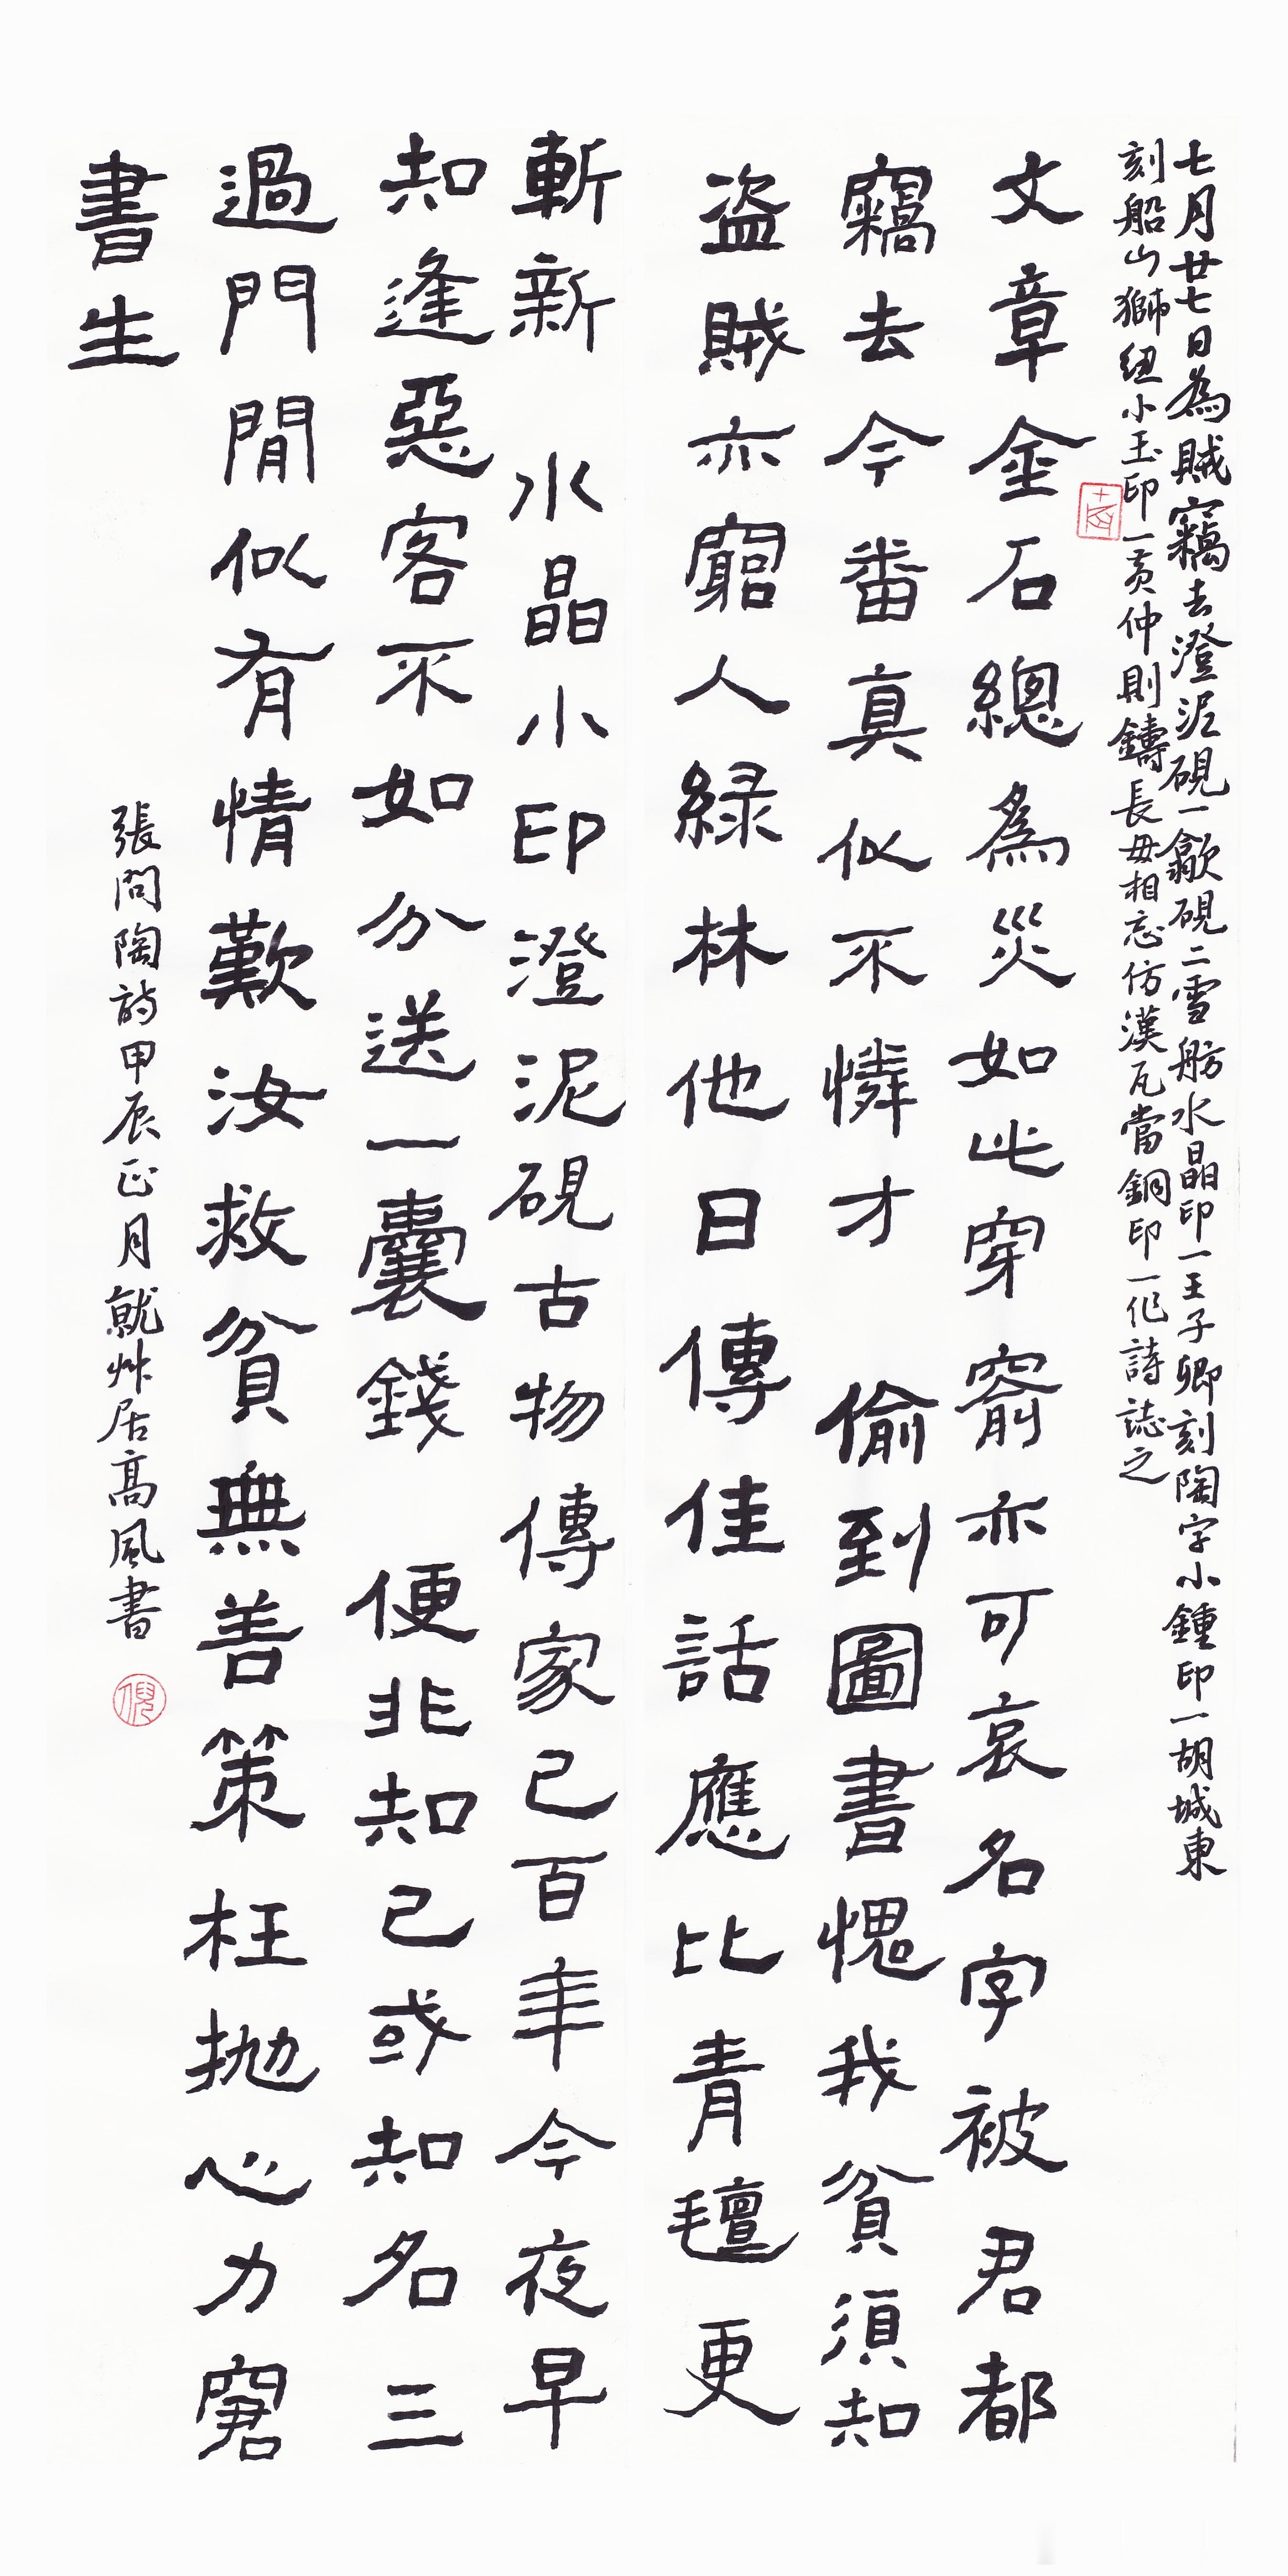 七月廿七日為賊竊去澄泥硯一歙硯二雪舫水晶印一王子卿刻陶字小鍾印一胡城東
刻船山獅紐小玉印一黃仲則鑄長毋相忘仿漢瓦當銅印一作詩誌之
文章金石總為災如此穿窬亦可哀名字被君都
竊去今番真似不憐才 偷到圖書愧我貧須知
盜賊亦窮人綠林他日傳佳話應比青氈更
斬新 水晶小印澄泥硯古物傳家已百年今夜早
知逢惡客不如分送一囊錢 便非知己或知名三
過門閒似有情歎汝救貧無善策枉拋心力窘
書生
張問陶詩甲辰正月就艸居高風書
倪